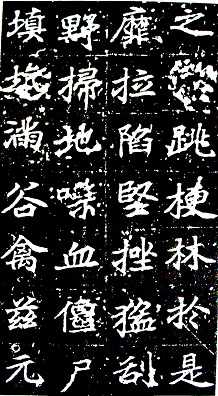 之跳梗林於是
靡拉陷堅挫猛刮
野掃地喋血僵尸
填滿谷禽茲元